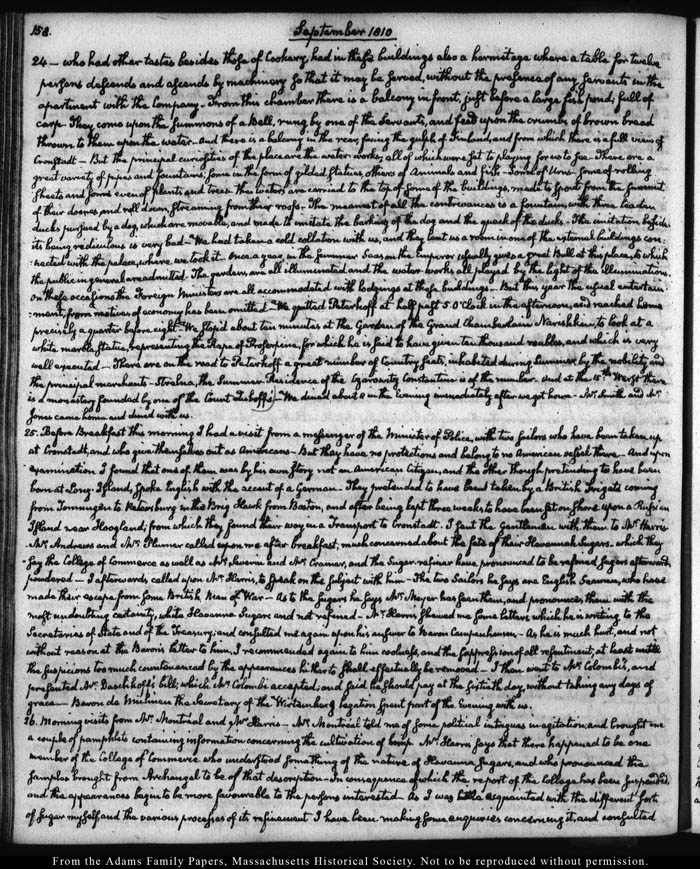 158.
September 1810
24 — who had other tastes besides those of Cookery, had in these buildings also a hermitage where a table for twelve
persons descends and ascends by machinery so that it may be served, without the presence of any servants in the
apartment with the Company. From this chamber there is a balcony in front, just before a large fish pond, full of
carp. They come upon the summons of a Bell, rung by one of the Servants, and feed upon the crumbs of brown bread
thrown to them upon the water. And there is a balcony in the rear, facing the gulph of Finland, and from which there is a full view of
Cronstadt — But the principal curiosities of the place are the water-works, all of which were set to playing for us to see. There are a
great variety of pipes and fountains; some in the form of gilded Statues, others of Animals and fish. Some of Urns. Some of rolling
sheets and some even of plants and trees. The waters are carried to the top of some of the buildings, made to spout from the summit
of their domes and roll down, streaming from their roofs. The meanest of all the contrivances is a fountain, with three leaden
ducks pursued by a dog, which are movable, and made to imitate the barking of the dog and the quack of the ducks. The imitation besides
its being rediculous is very bad. We had taken a cold collation with us, and they lent us a room in one of the external buildings con-
nected with the palace, where we took it. Once a year, in the Summer Season the Emperor usually gives a great Ball at this place, to which
the public in general are admitted. The gardens are all illuminated and the water-works all played by the light of the Illuminations.
On these occasions the Foreign Ministers are all accommodated with lodgings at these buildings. But this year the usual entertain-
ment, from motives of economy has been omitted. We quitted Peterhoff at half past 5 O'Clock in the afternoon, and reached home
precisely a quarter before eight. We stop'd about ten minutes at the Garden of the Grand Chamberlain Narishkin, to look at a
white marble Statue, representing the Rape of Proserpine, for which he is said to have given ten thousand roubles, and which is very
well executed — There are on the road to Peterhoff a great number of Country seats, inhabited during Summer, by the nobility and
the principal merchants. Strelna, the Summer Residence of the Czarovitz Constantine is of the number. And at the 15th Werst there
is a monastery founded by one of the Count Zuboffs — We dined about 8 in the evening immediately after we got home. Mr. Smith and Mr.
Jones came home and dined with us.
25. Before Breakfast this morning I had a visit from a messenger of the Minister of Police, with two sailors who have been taken up
at Cronstadt, and who give themselves out as Americans. But they have no protections and belong to no American vessel there. And upon
examination I found that one of them was by his own story not an American Citizen, and the other though pretending to have been
born at Long-Island, spoke English with the accent of a German. They pretended to have been taken by a British frigate coming
from Tonningen to Petersburg in the Brig Hawk from Boston, and after being kept three weeks to have been set on shore upon a Russian
Island near Hoogland, from which they found their way in a Transport to Cronstadt. I sent the Gentlemen with them to Mr. Harris.
Mr. Andrews and Mr. Plummer called upon me after breakfast, much concerned about the fate of their Havannah Sugars. which they
say the College of Commerce as well as Mr. Severin and Mr. Cramer, and the Sugar-refiner have pronounced to be refined Sugars afterwards
powdered — I afterwards called upon Mr. Harris, to speak on the subject with him — The two Sailors he says are English Seamen, who have
made their escape from some British Man of War — As to the Sugars he says Mr. Meyer has seen them, and pronounces them with the
most undoubting certainty, white Havanna Sugars and not refined. Mr. Harris shewed me some letters which he is writing to the
Secretaries of State and of the Treasury; and consulted me again upon his answer to Baron Campenhausen. As he is much hurt, and not
without reason at the Baron's letter to him, I recommended again to him coolness, and the suppression of all resentment, at least until
the suspicions too much countenanced by the appearances hitherto shall effectually be removed — I then went to Mr. Colombi's, and
presented Mr. Daschkoff's bill; which Mr. Colombi accepted, and said he should pay at the sixtieth day, without taking any days of
grace — Baron de Misliwen the Secretary of the Wirtemberg legation spent part of the Evening with us.
26. Morning visits from Mr. Montréal and Mr. Harris — Mr. Montréal told me of some political intrigues in agitation and brought me
a couple of pamphlets containing information concerning the cultivation of hemp. Mr. Harris says that there happened to be one
member of the College of Commerce who understood something of the nature of Havanna Sugars, and who pronounced the
samples brought from Archangel to be of that description. In consequence of which the report of the College has been suspended,
and the appearances begin to be more favourable to the persons interested. As I was little acquainted with the different sorts
of Sugar myself, and the various processes of its refinement I have been making some enquiries concerning it, and consulted
From the Adams Family Papers, Massachusetts Historical Society. Not to be reproduced without permission.